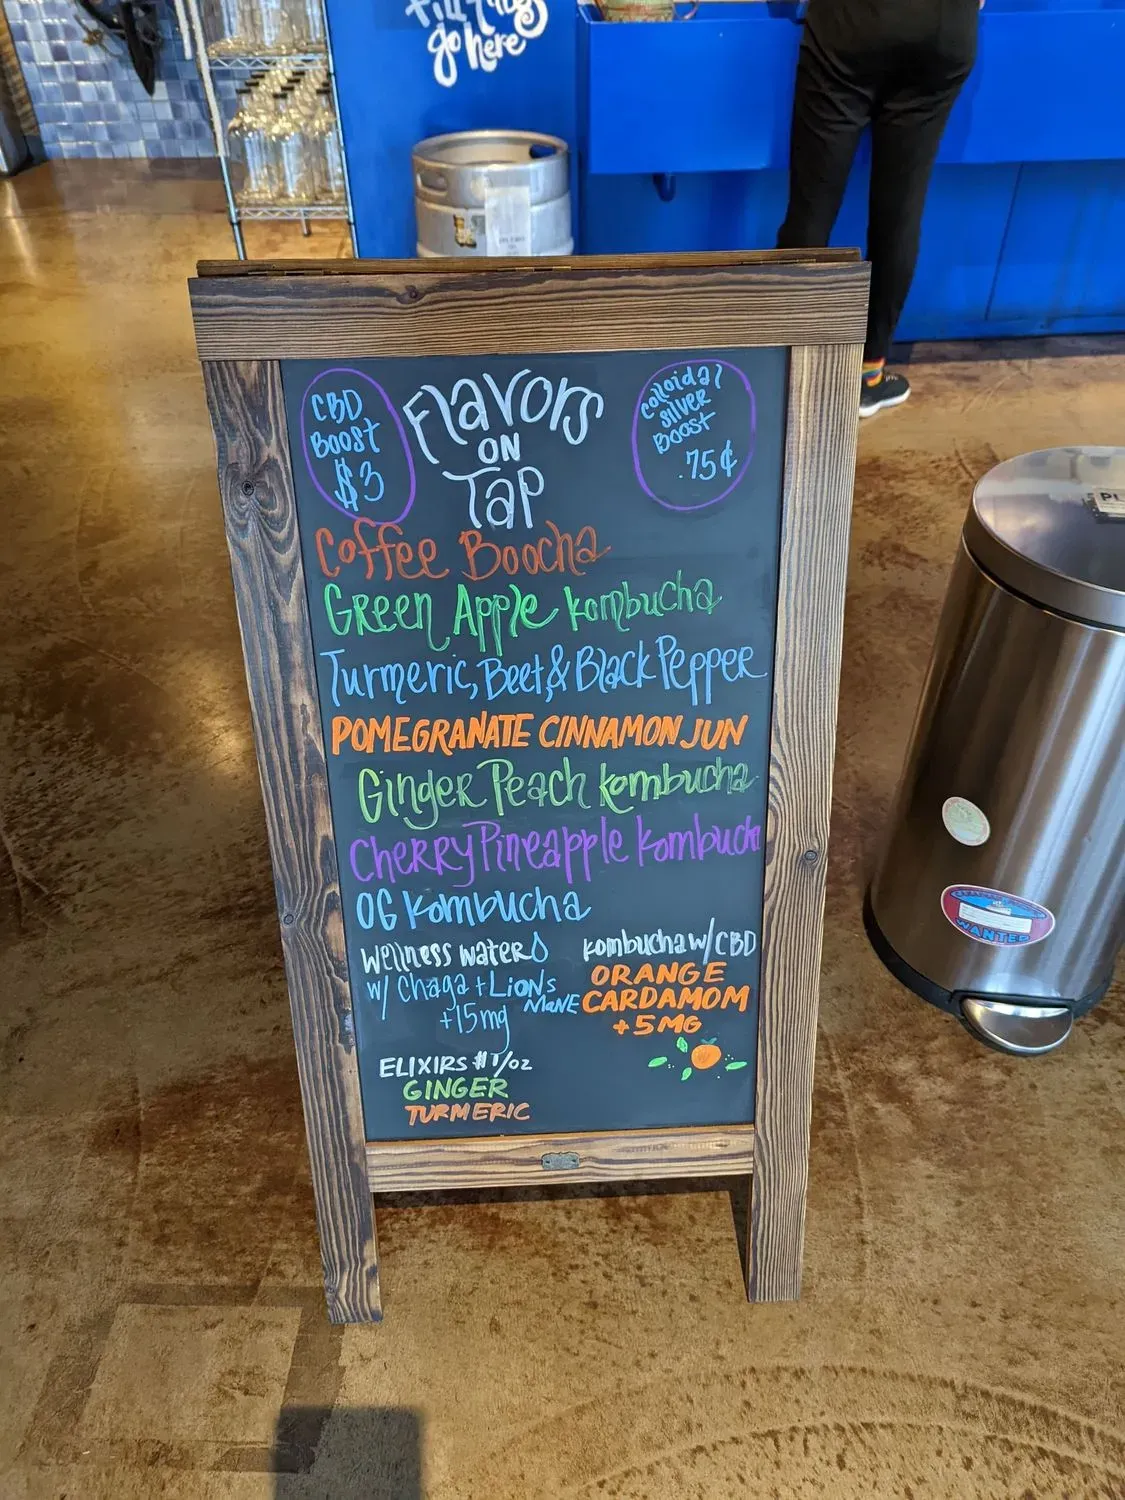 go here
CBD
BOOST
$3
Flavors
ON
Tap
Colloidal
SILVER
BOOST
.75¢
Coffee Boocha
Green Apple Kombucha
Turmeric, Beet, & Black Pepper
POMEGRANATE CINNAMON JUN
Ginger Peach Kombucha
Cherry Pineapple Kombucha
OG Kombucha
Wellness Water
w/ Chaga + Lions
Mane
+15mg
Kombucha w/ CBD
ORANGE
CARDAMOM
+5MG
ELIXIRS $1/oz
GINGER
TURMERIC
WANTED